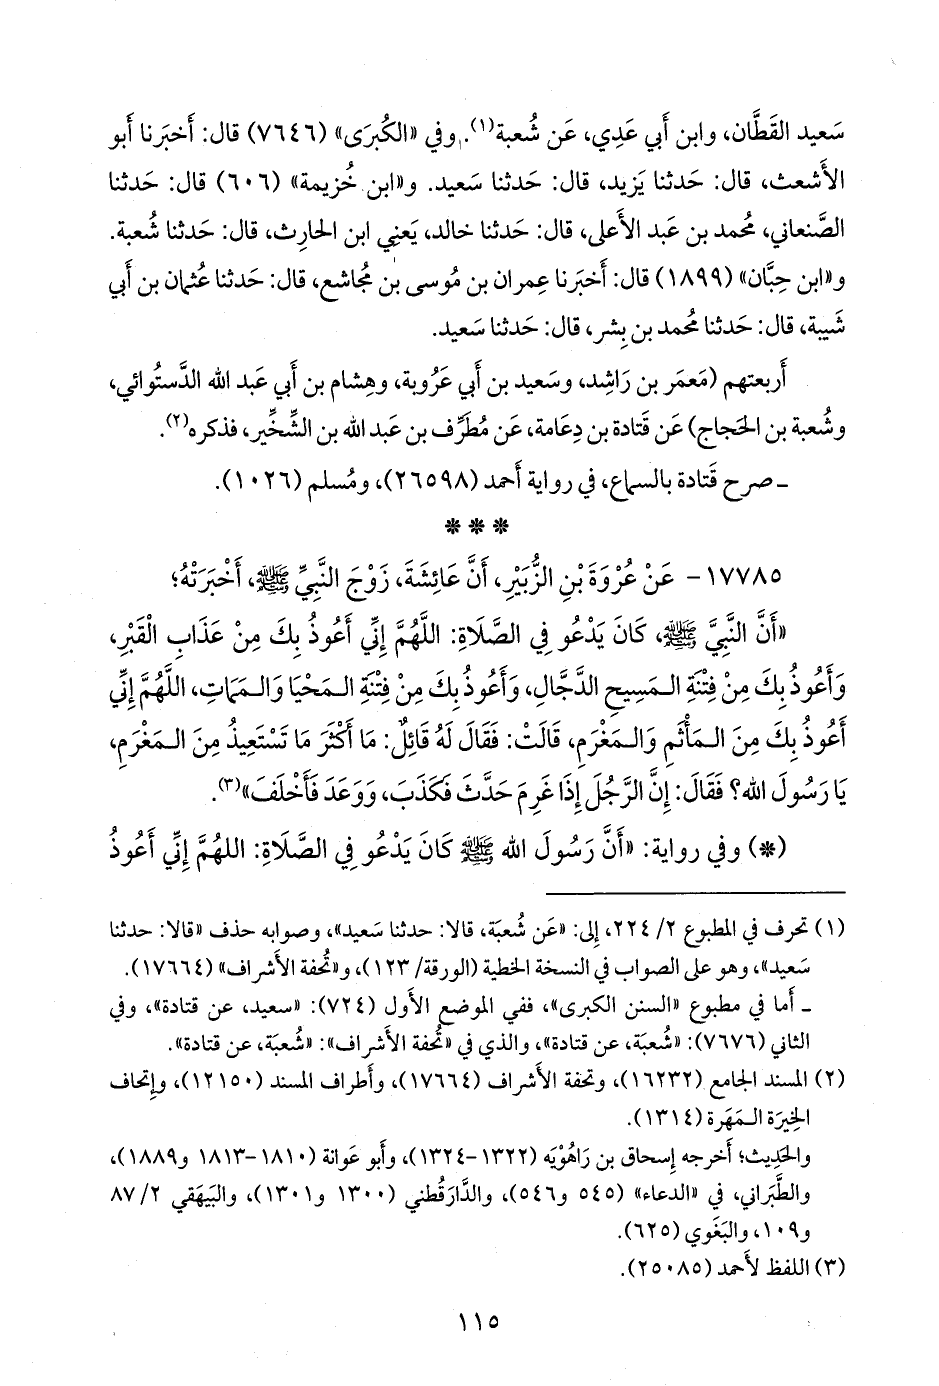 سَعيد القَطَّان، وابن أَبي عَدِي، عَن شُعبة(١). وفي «الكُبرَى» (٧٦٤٦) قال: أَخبَرنا أَبو
الأَشعث، قال: حَدثنا يَزيد، قال: حَدثنا سَعيد. و«ابن خُزيمة» (٦٠٦) قال: حَدثنا
الصَّنعاني، مُحمد بن عَبد الأَعلى، قال: حَدثنا خالد، يَعني ابن الحارِث، قال: حَدثنا شُعبة.
و«ابن حِبَّان» (١٨٩٩) قال: أَخبَرنا عِمران بن مُوسى بن مُجاشع، قال: حَدثنا عُثمان بن أَبي
شَيبة، قال: حَدثنا مُحمد بن بِشر، قال: حَدثنا سَعيد.
أَربعتهم (مَعمَر بن رَاشِد، وسَعيد بن أَبي عَرُوبة، وهِشام بن أَبي عَبد الله الدَّستُوائي،
وشُعبة بن الحَجاج) عَن قَتادة بن دِعَامة، عَن مُطَرِّف بن عَبد الله بن الشِّخِّير، فذكره(٢).
ـ صرح قَتادة بالسماع، في رواية أَحمد (٢٦٥٩٨)، ومُسلم (١٠٢٦).
* * *
١٧٧٨٥ - عَنْ عُرْوَةَ بْنِ الزُّبَيْرِ، أَنَّ عَائِشَةَ، زَوْجَ النَّبِيِّ ﷺ، أَخْبَرَتْهُ؛
«أَنَّ النَّبِيَّ ﷺ، كَانَ يَدْعُو فِي الصَّلَاةِ: اللَّهُمَّ إِنِّي أَعُوذُ بِكَ مِنْ عَذَابِ الْقَبْرِ،
وَأَعُوذُ بِكَ مِنْ فِتْنَةِ الـمَسِيحِ الدَّجَّالِ، وَأَعُوذُ بِكَ مِنْ فِتْنَةِ الـمَحْيَا وَالـمَمَاتِ، اللَّهُمَّ إِنِّي
أَعُوذُ بِكَ مِنَ الـمَأْثَمِ وَالـمَغْرَمِ، قَالَتْ: فَقَالَ لَهُ قَائِلٌ: مَا أَكْثَرَ مَا تَسْتَعِيذُ مِنَ الـمَغْرَمِ،
يَا رَسُولَ الله؟ فَقَالَ: إِنَّ الرَّجُلَ إِذَا غَرِمَ حَدَّثَ فَكَذَبَ، وَوَعَدَ فَأَخْلَفَ»(٣).
(*) وفي رواية: «أَنَّ رَسُولَ الله ﷺ كَانَ يَدْعُو فِي الصَّلَاةِ: اللهُمَّ إِنِّي أَعُوذُ
(١) تحرف في المطبوع ٢/ ٢٢٤، إلى: «عَن شُعبَة، قالا: حدثنا سَعيد»، وصوابه حذف «قالا: حدثنا
سَعيد»، وهو على الصواب في النسخة الخطية (الورقة/ ١٢٣)، و«تُحفة الأشراف» (١٧٦٦٤).
ـ أما في مطبوع «السنن الكبرى»، ففي الموضع الأول (٧٢٤): «سعيد، عن قتادة»، وفي
الثاني (٧٦٧٦): «شُعبَة، عن قتادة»، والذي في «تُحفة الأشراف»: «شُعبَة، عن قتادة».
(٢) المسند الجامع (١٦٢٣٢)، وتحفة الأشراف (١٧٦٦٤)، وأطراف المسند (١٢١٥٠)، وإتحاف
الخِيرَة الـمَهَرة (١٣١٤).
والحَديث؛ أخرجه إسحاق بن رَاهُوْيَه (١٣٢٢-١٣٢٤)، وأَبو عَوانة (١٨١٠-١٨١٣ و١٨٨٩)،
والطَّبَراني، في «الدعاء» (٥٤٥ و٥٤٦)، والدَّارَقُطني (١٣٠٠ و١٣٠١)، والبَيهَقي ٢/ ٨٧
و١٠٩، والبَغَوي (٦٢٥).
(٣) اللفظ لأَحمد (٢٥٠٨٥).
١١٥